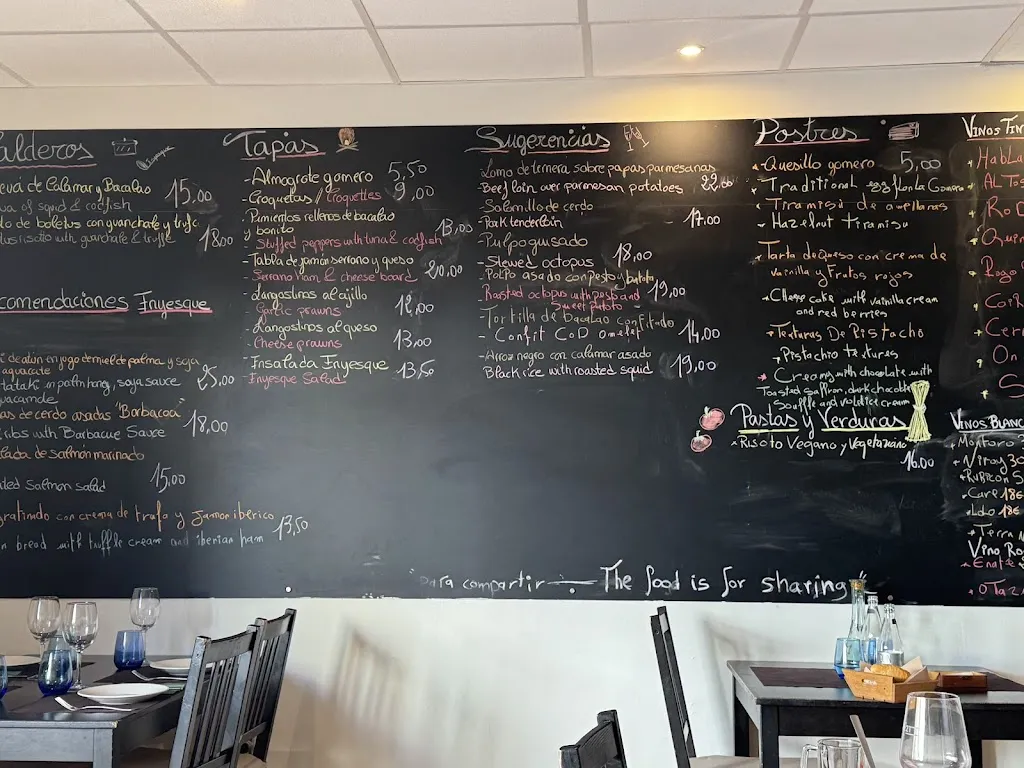 alderos
eva de Calamar y Bacalao
15.00
va of squid & codfish
do de boletus con guanchafe y trufa
tus risotto with guanchafe & truffe
18.00
comendaciones Enyesque
de atun en jugo de miel de palma y soja
aguacate
tataki in palm honey, soja sauce
25.00
uacamole
as de cerdo asadas "Barbacoa"
ribs with Barbacue Sauce
18,00
lada de salmon marinado
15.00
ted Salmon salad
gratinado con crema de trufa y Jamon iberico
n bread with truffle cream and iberian ham
13,50
Tapas
- Almogrote gomero 5,50
- Croquetas/Croquettes 9,00
- Pimientos rellenos de bacalao
y bonito
13,00
- Stuffed peppers with tuna & codfish
- Tabla de jamon serrano y queso
- Serrano ham & cheese board
20,00
- Langostinos al ajillo
- Garlic prawns
- Langostinos al queso
- Cheese prawns
13,00
- Ensalada Enyesque
Enyesque Salad
13,50
Sugerencias
- Lomo de ternera sobre papas parmesanas
- Beef loin over parmesan potatoes
- Solomillo de cerdo
- Pork tenderloin
17.00
- Pulpo guisado
- Stewed octopus
18,00
- Polpo asado con pesto y batata
- Roasted octopus with pesto and
Sweet potato
19,00
- Tortilla de Bacalao Confitado
- Confit COD omelet
14,00
- Arroz negro con calamar asado
Black rice with roasted squid
19,00
Postres
- Quesillo gomero 5,00
- Traditional egg flan La Gomera
- Tiramisu de avellanas
- Hazelnut tiramisu
- Tarta de Queso con crema de
vainilla y Frutos rojos
- Cheese cake with vainilla cream
and red berries
- Texturas De Pistacho
- Pistachio textures
- Creamy with chocolate with
Toasted saffron, dark chocolate
Souffle and
ice cream
Pastas y Verduras
- Risoto Vegano y Vegetariano
16.00
Vinos Tin
Habla
Al Tos
Ro D
Rogo
Cer
On
S
Vinos Blanc
Rubicon S
Care 18€
Lobo 18€
Terra
Vino Ro
Enate
"para compartir — The food is for sharing"